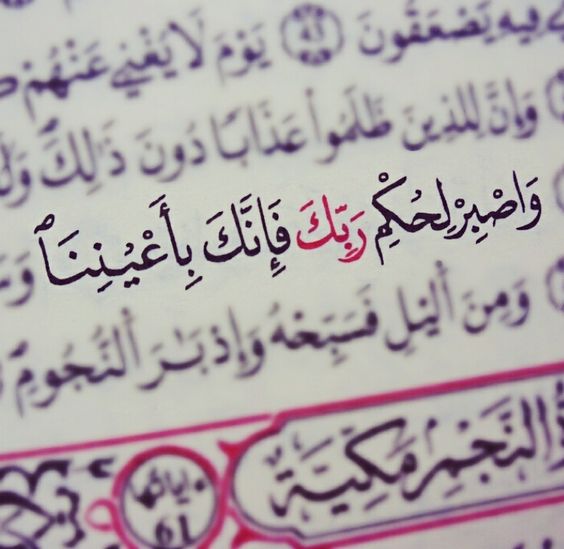 فِيهِ يَصْعَقُونَ ٤٥ يَوْمَ لَا يُغْنِي عَنْهُمْ
وَإِنَّ لِلذِينَ ظَلَمُواْ عَذَابًا دُونَ ذَٰلِكَ
وَاصْبِرْ لِحُكْمِ رَبِّكَ فَإِنَّكَ بِأَعْيُنِنَا
وَمِنَ اَليْلِ فَسَبِّحْهُ وَإِدْبَٰرَ اَلنُّجُومِ
اَلنَّجْمِ مَكِّيَّةٌ
61